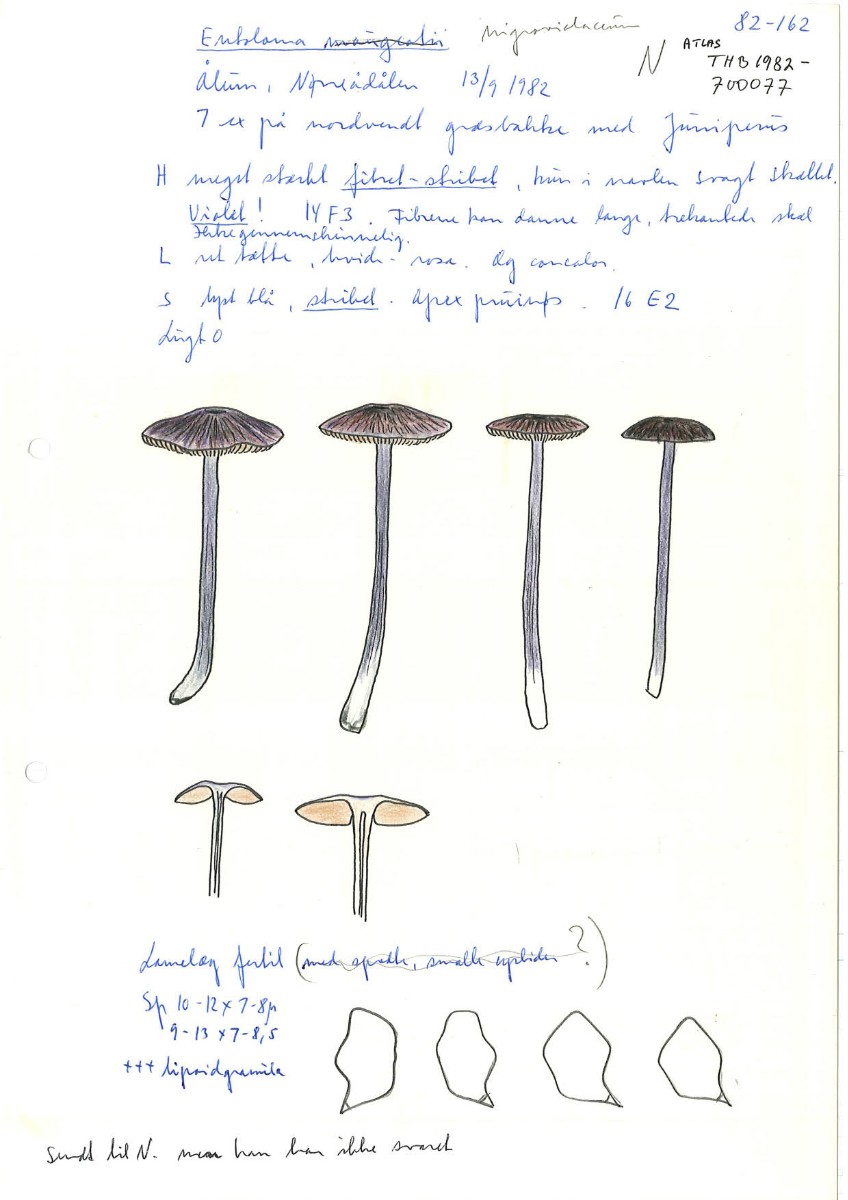 82-162
Entoloma mougeotii nigroviolaceum
N ATLAS
THB1982-
700077
Ålum, Nørreådalen 13/9 1982
7 ex på nordvendt græsbakke med Juniperus
H meget stærkt fibret-stribet, kun i navlen svagt skællet.
Violet! 14 F3. Fibrene kan danne lange, trekantede skæl
Ikke gennemskinnelig.
L ret tætte, hvide-rosa. Æg concolor.
S lyst blå, stribet. Apex pruinøs. 16 E2
Lugt 0
Lamelæg fertil (med spredte, smalle cystider ?)
Sp 10-12 x 7-8µ
9-13 x 7-8,5
+++ lipoidgranula
Sendt til N. men han har ikke svaret